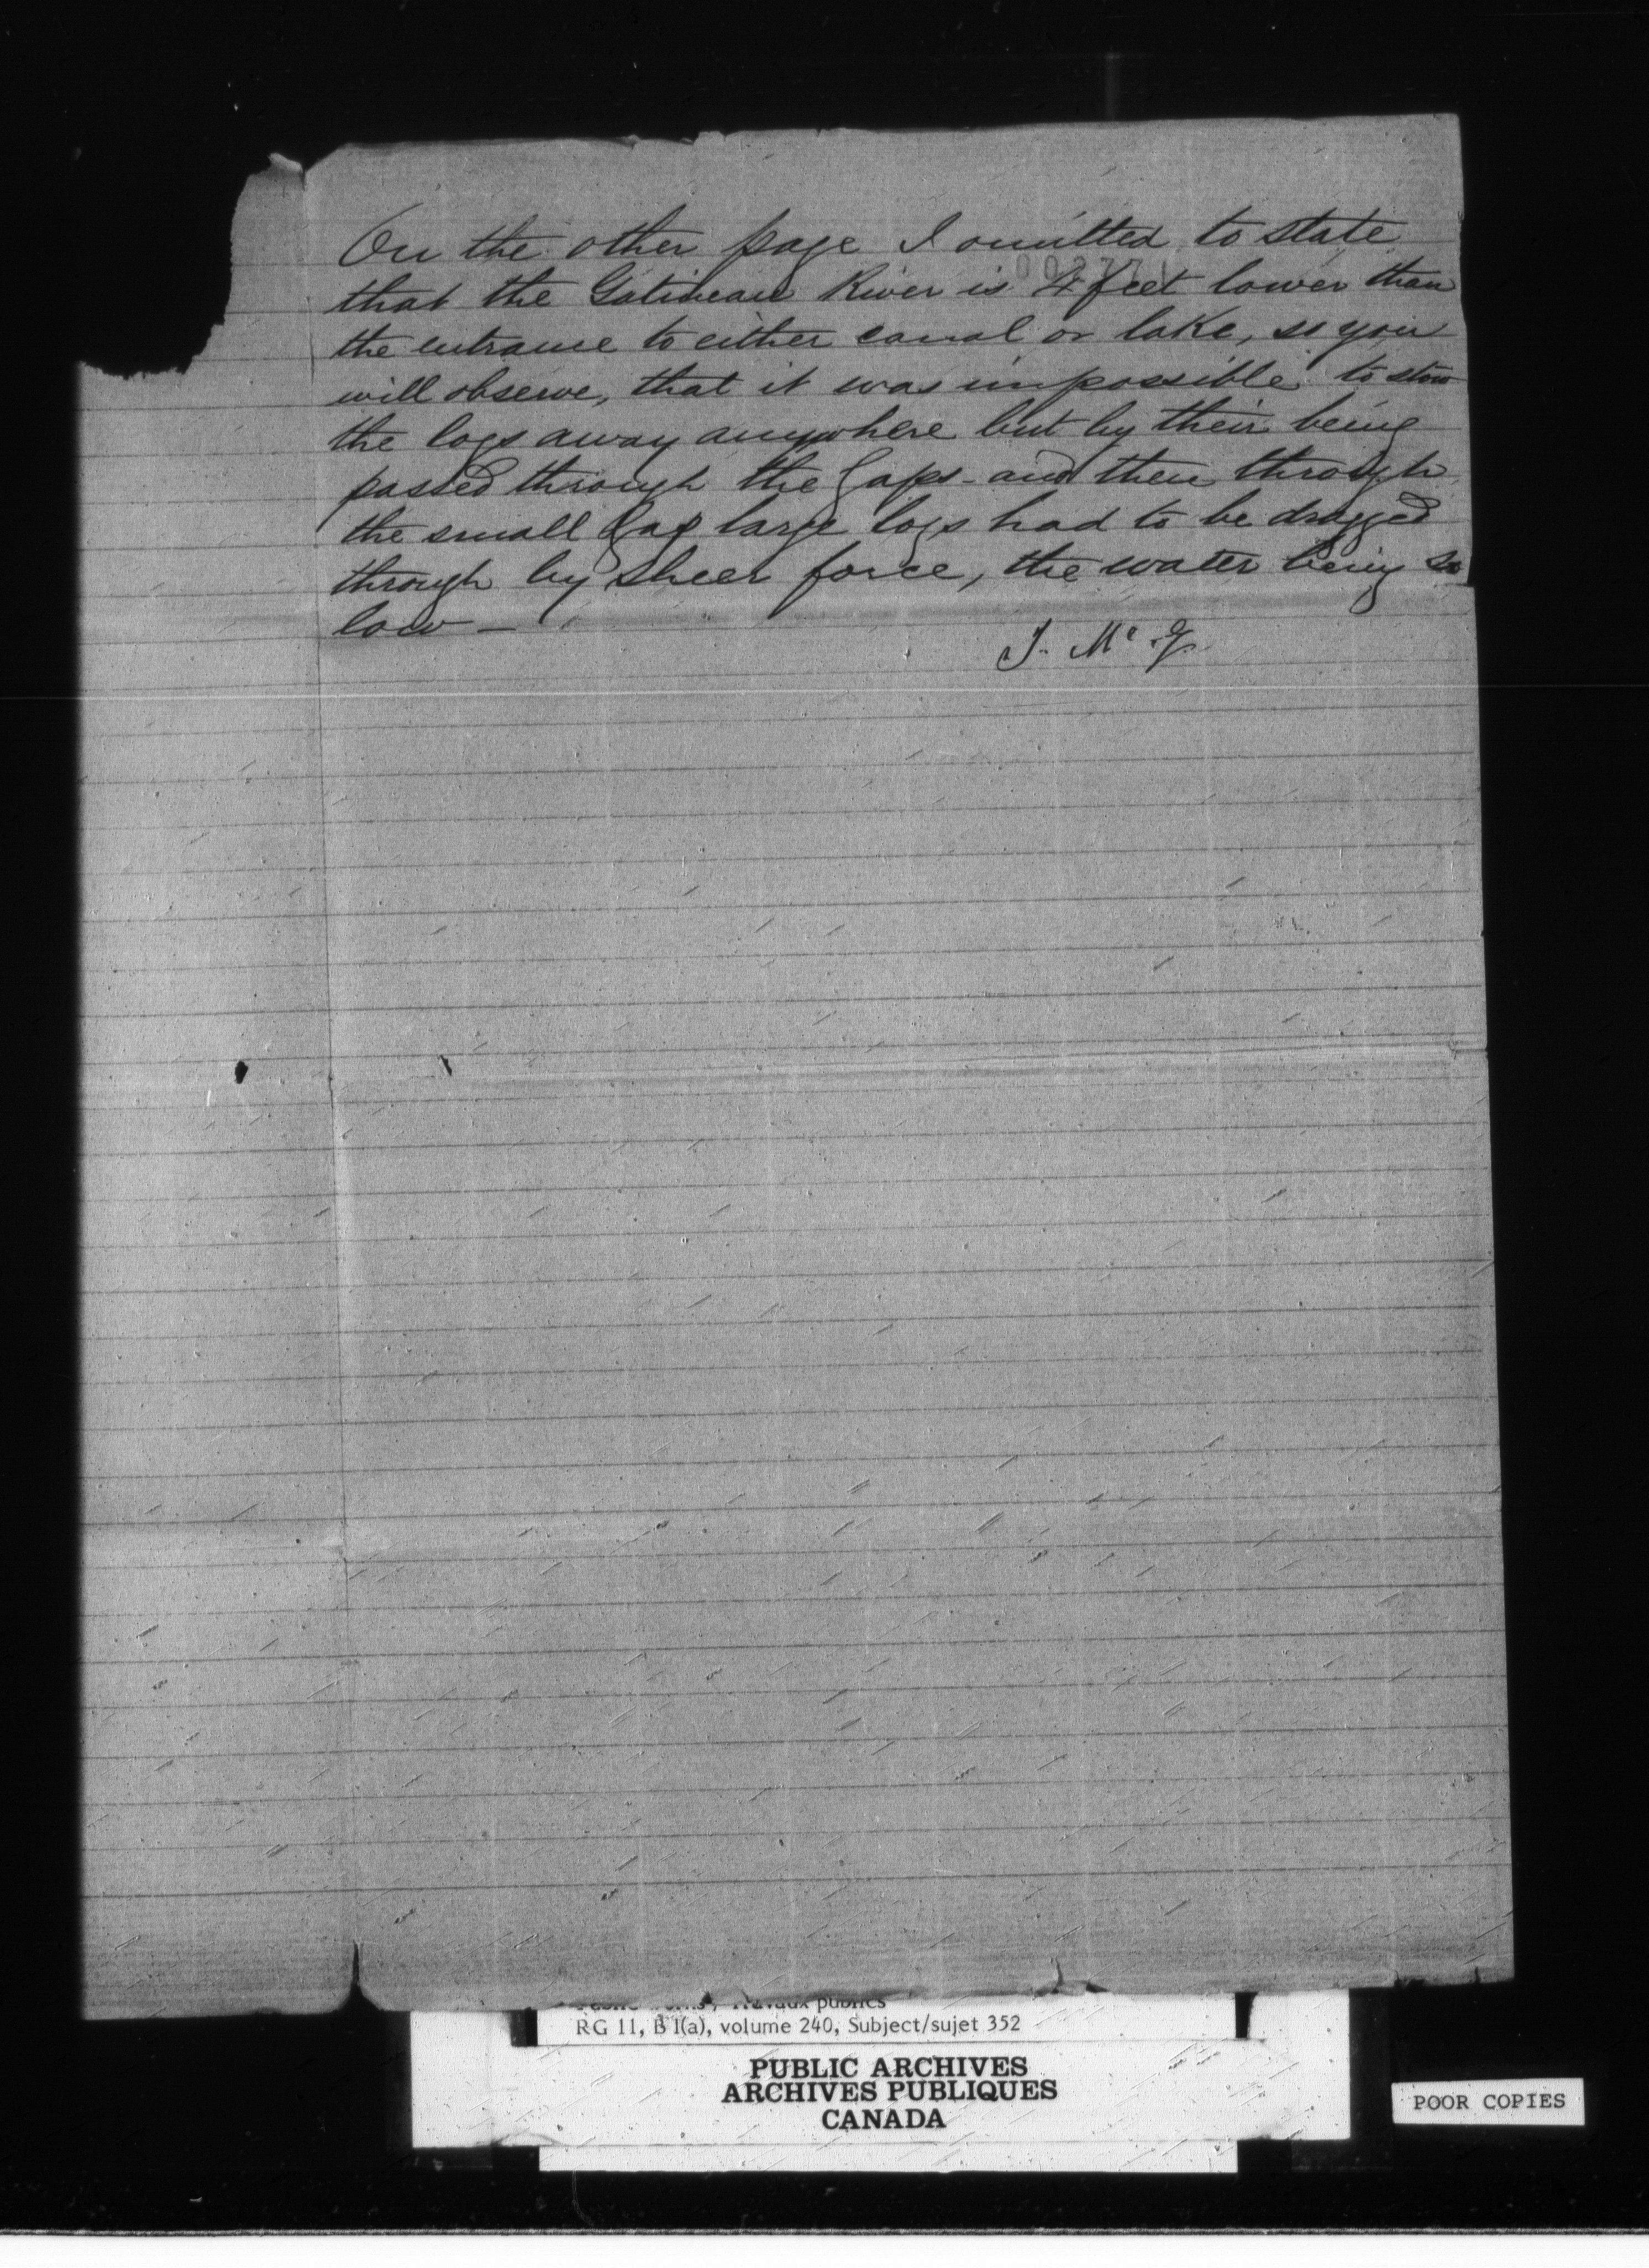 On the other page I omitted to state
002771
that the Gatineau River is 4 feet lower than
the entrance to either canal or lake, so you
will observe, that it was impossible to stow
the logs away anywhere but by their being
passed through the Gaps - and then through
the small Gap large logs had to be dragged
through by sheer force, the water being so
low -
J. Mc G.
Public Works / Travaux publics
RG 11, B 1(a), volume 240, Subject/sujet 352
PUBLIC ARCHIVES
ARCHIVES PUBLIQUES
CANADA
POOR COPIES